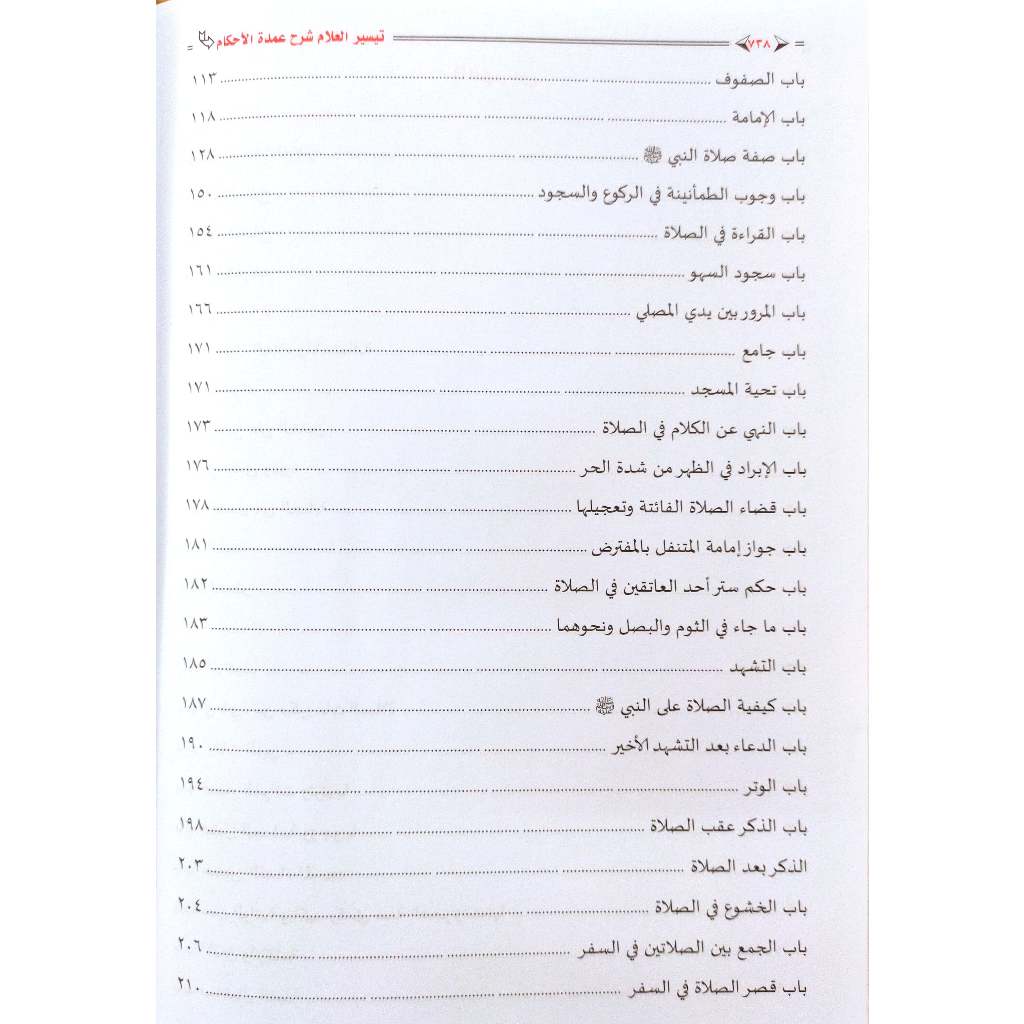 ٧٣٨ تيسير العلام شرح عمدة الأحكام
باب الصفوف ........ ١١٣
باب الإمامة ........ ١١٨
باب صفة صلاة النبي ﷺ ........ ١٢٨
باب وجوب الطمأنينة في الركوع والسجود ........ ١٥٠
باب القراءة في الصلاة ........ ١٥٤
باب سجود السهو ........ ١٦١
باب المرور بين يدي المصلي ........ ١٦٦
باب جامع ........ ١٧١
باب تحية المسجد ........ ١٧١
باب النهي عن الكلام في الصلاة ........ ١٧٣
باب الإبراد في الظهر من شدة الحر ........ ١٧٦
باب قضاء الصلاة الفائتة وتعجيلها ........ ١٧٨
باب جواز إمامة المتنفل بالمفترض ........ ١٨١
باب حكم ستر أحد العاتقين في الصلاة ........ ١٨٢
باب ما جاء في الثوم والبصل ونحوهما ........ ١٨٣
باب التشهد ........ ١٨٥
باب كيفية الصلاة على النبي ﷺ ........ ١٨٧
باب الدعاء بعد التشهد الأخير ........ ١٩٠
باب الوتر ........ ١٩٤
باب الذكر عقب الصلاة ........ ١٩٨
الذكر بعد الصلاة ........ ٢٠٣
باب الخشوع في الصلاة ........ ٢٠٤
باب الجمع بين الصلاتين في السفر ........ ٢٠٦
باب قصر الصلاة في السفر ........ ٢١٠